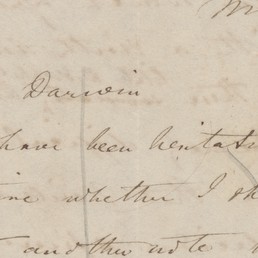 Darwin
have been hesitat
time whether I sh
another note